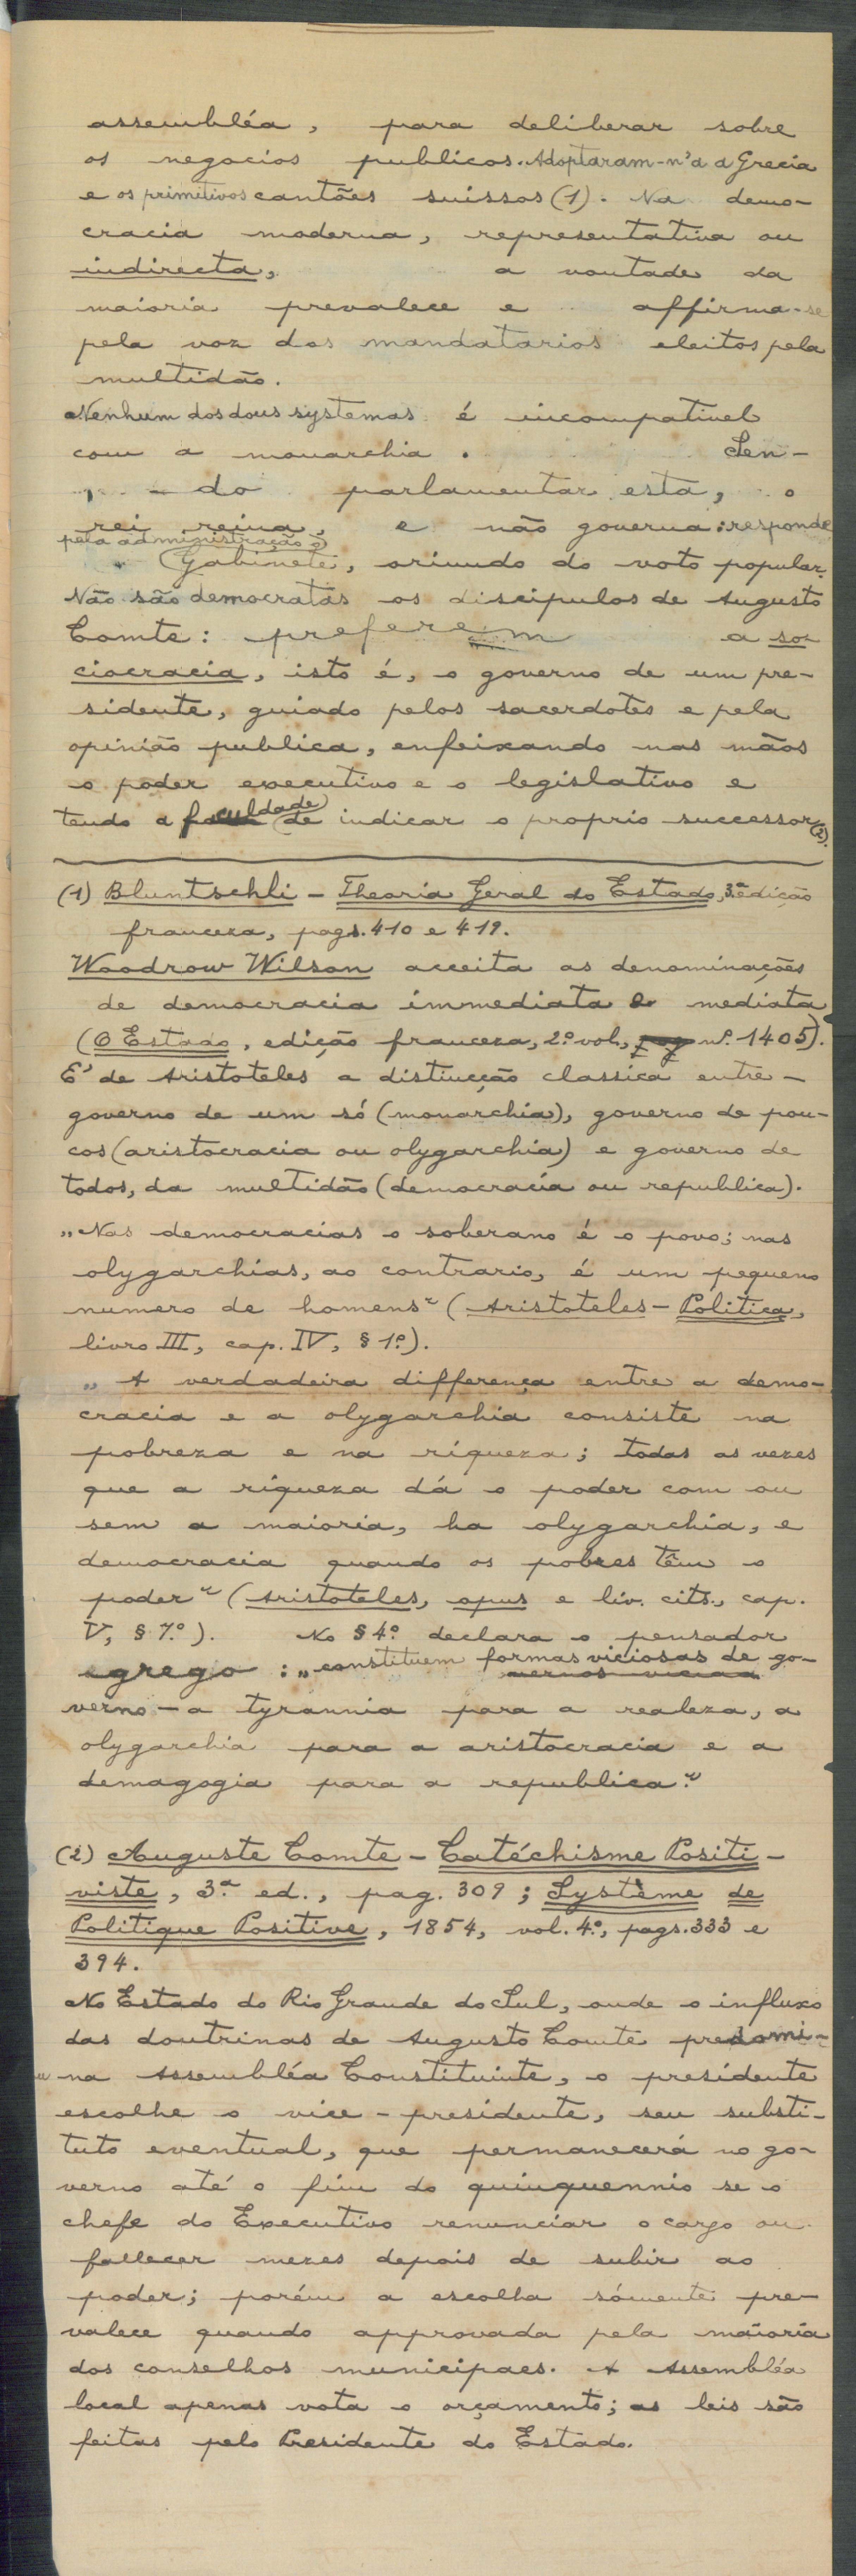 assembléa, para deliberar sobre
os negocios publicos. Adoptaram-n'a a Grecia
e os primitivos cantões suissos (1). Na demo-
cracia moderna, representativa ou
indirecta, a vontade da
maioria prevalece e affirma-se
pela voz dos mandatarios eleitos pela
multidão.
Nenhum dos dous systemas é incompativel
com a monarchia. Sen-
do parlamentar esta, o
rei reina, e não governa: responde
pela administração o
Gabinete, oriundo do voto popular.
Não são democratas os discipulos de Augusto
Comte: preferem a so-
ciocracia, isto é, o governo de um pre-
sidente, guiado pelos sacerdotes e pela
opinião publica, enfeixando nas mãos
o poder executivo e o legislativo e
tendo a faculdade de indicar o proprio successor (2).
(1) Bluntschli - Theoria Geral do Estado, 3.ª edição
franceza, pags. 410 e 419.
Woodrow Wilson acceita as denominações
de democracia immediata e mediata
(O Estado, edição franceza, 2.º vol., n.º 1405).
E' de Aristoteles a distincção classica entre -
governo de um só (monarchia), governo de pou-
cos (aristocracia ou olygarchia) e governo de
todos, da multidão (democracia ou republica).
„Nas democracias o soberano é o povo; nas
olygarchias, ao contrario, é um pequeno
numero de homens“ (Aristoteles - Politica,
livro III, cap. IV, § 1.º).
„A verdadeira differença entre a demo-
cracia e a olygarchia consiste na
pobreza e na riqueza; todas as vezes
que a riqueza dá o poder com ou
sem a maioria, ha olygarchia, e
democracia quando os pobres têm o
poder“ (Aristoteles, opus e liv. cits., cap.
V, § 7.º). No § 4.º declara o pensador
grego: „constituem formas viciosas de go-
verno - a tyrannia para a realeza, a
olygarchia para a aristocracia e a
demagogia para a republica.“
(2) Auguste Comte - Catéchisme Positi-
viste, 3.ª ed., pag. 309; Système de
Politique Positive, 1854, vol. 4.º, pags. 333 e
394.
No Estado do Rio Grande do Sul, onde o influxo
das doutrinas de Augusto Comte predomi-
na Assembléa Constituinte, o presidente
escolhe o vice-presidente, seu substi-
tuto eventual, que permanecerá no go-
verno até o fim do quinquennio se o
chefe do Executivo renunciar o cargo ou
fallecer mezes depois de subir ao
poder; porém a escolha sómente pre-
valece quando approvada pela maioria
dos conselhos municipaes. A Assembléa
local apenas vota o orçamento; as leis são
feitas pelo Presidente do Estado.